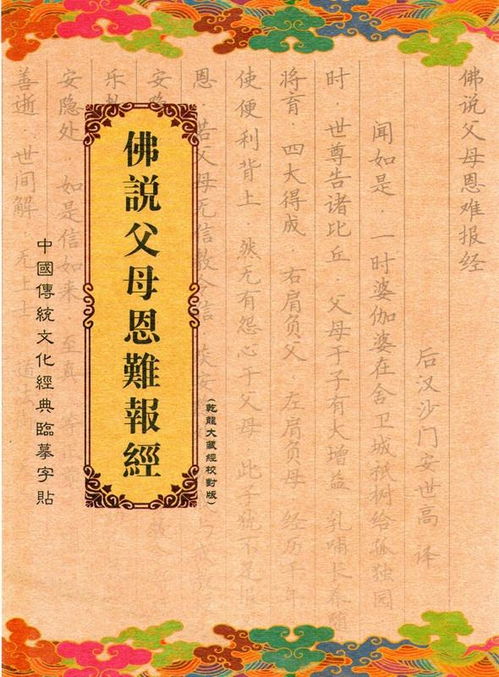 佛說父母恩難報經
(乾龍大藏經校對版)
中國傳統文化經典臨摹字貼
佛说父母恩难报经
后汉沙门安世高 译
闻如是·一时婆伽婆在舍卫城祇树给孤独园
时·世尊告诸比丘·父母于子有大增益 乳哺长养随
将育·四大得成 右肩负父 左肩负母 经历千年
使便利背上 然无有怨心于父母 此子犹不足报
恩 若父母无信教令信
安隐处 如是信如来 至真
善逝 世间解·无上士